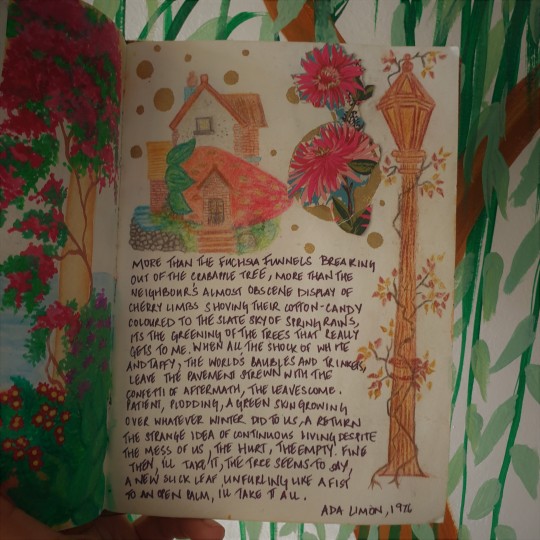 MORE THAN THE FUCHSIA FUNNELS BREAKING
OUT OF THE CRABAPPLE TREE, MORE THAN THE
NEIGHBOUR'S ALMOST OBSCENE DISPLAY OF
CHERRY LIMBS SHOVING THEIR COTTON-CANDY
COLOURED TO THE SLATE SKY OF SPRING RAINS,
ITS THE GREENING OF THE TREES THAT REALLY
GETS TO ME. WHEN ALL THE SHOCK OF WHITE
AND TAFFY, THE WORLDS BAUBLES AND TRINKETS,
LEAVE THE PAVEMENT STREWN WITH THE
CONFETTI OF AFTERMATH, THE LEAVES COME.
PATIENT, PLODDING, A GREEN SKIN GROWING
OVER WHATEVER WINTER DID TO US, A RETURN
THE STRANGE IDEA OF CONTINUOUS LIVING DESPITE
THE MESS OF US, THE HURT, THE EMPTY. FINE
THEN, I'LL TAKE IT, THE TREE SEEMS TO SAY,
A NEW SLICK LEAF UNFURLING LIKE A FIST
TO AN OPEN PALM, I'LL TAKE IT ALL.
ADA LIMON, 1976